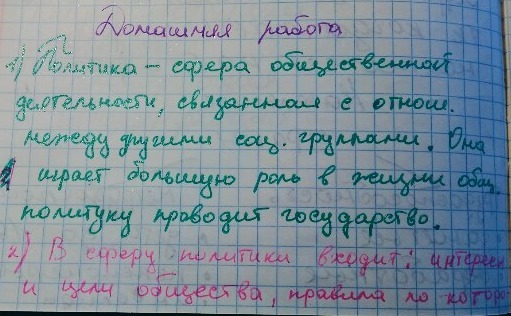 Домашняя работа
1) Политика - сфера общественной
деятельности, связанная с отнош.
между другими соц. группами. Она
играет большую роль в жизни общ.
политуку проводит государство.
2) В сферу политики входит: интересы
и цели общества, правила по которо